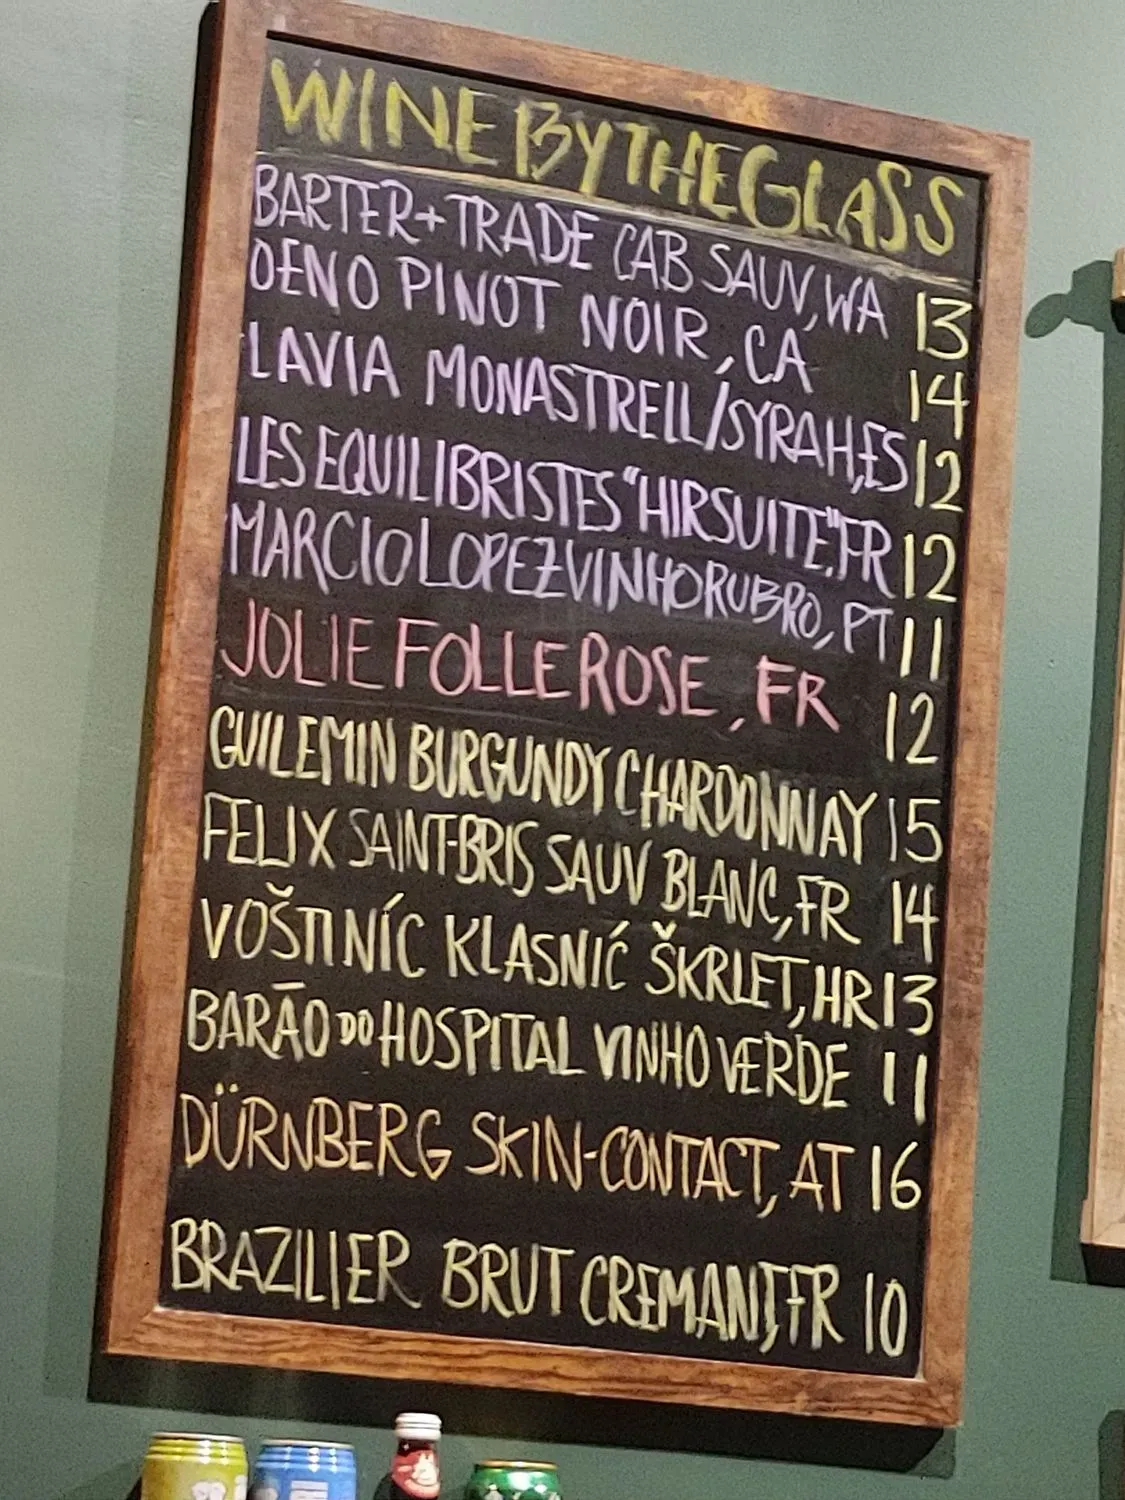 WINE BY THE GLASS
BARTER+TRADE CAB SAUV, WA 13
OENO PINOT NOIR, CA 14
LAVIA MONASTRELL/SYRAH, ES 12
LES EQUILIBRISTES "HIRSUITE", FR 12
MARCIO LOPEZ VINHO RUBRO, PT 11
JOLIE FOLLE ROSE, FR 12
GUILEMIN BURGUNDY CHARDONNAY 15
FELIX SAINT-BRIS SAUV BLANC, FR 14
VOŠTINÍC KLASNIĆ ŠKRLET, HR 13
BARĀO DO HOSPITAL VINHO VERDE 11
DÜRNBERG SKIN-CONTACT, AT 16
BRAZILIER BRUT CREMANT, FR 10